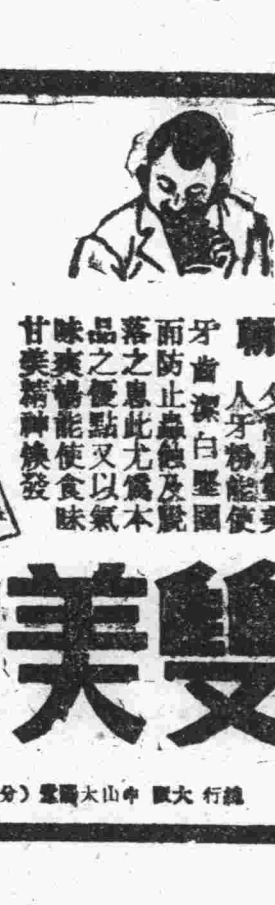 朝
人牙粉能使
牙齒潔白堅固
而防止蟲蝕及脫
落之患此尤爲本
品之優點又以氣
味爽暢能使食味
甘美精神煥發
雙美
總行 大阪 中山太陽堂（分